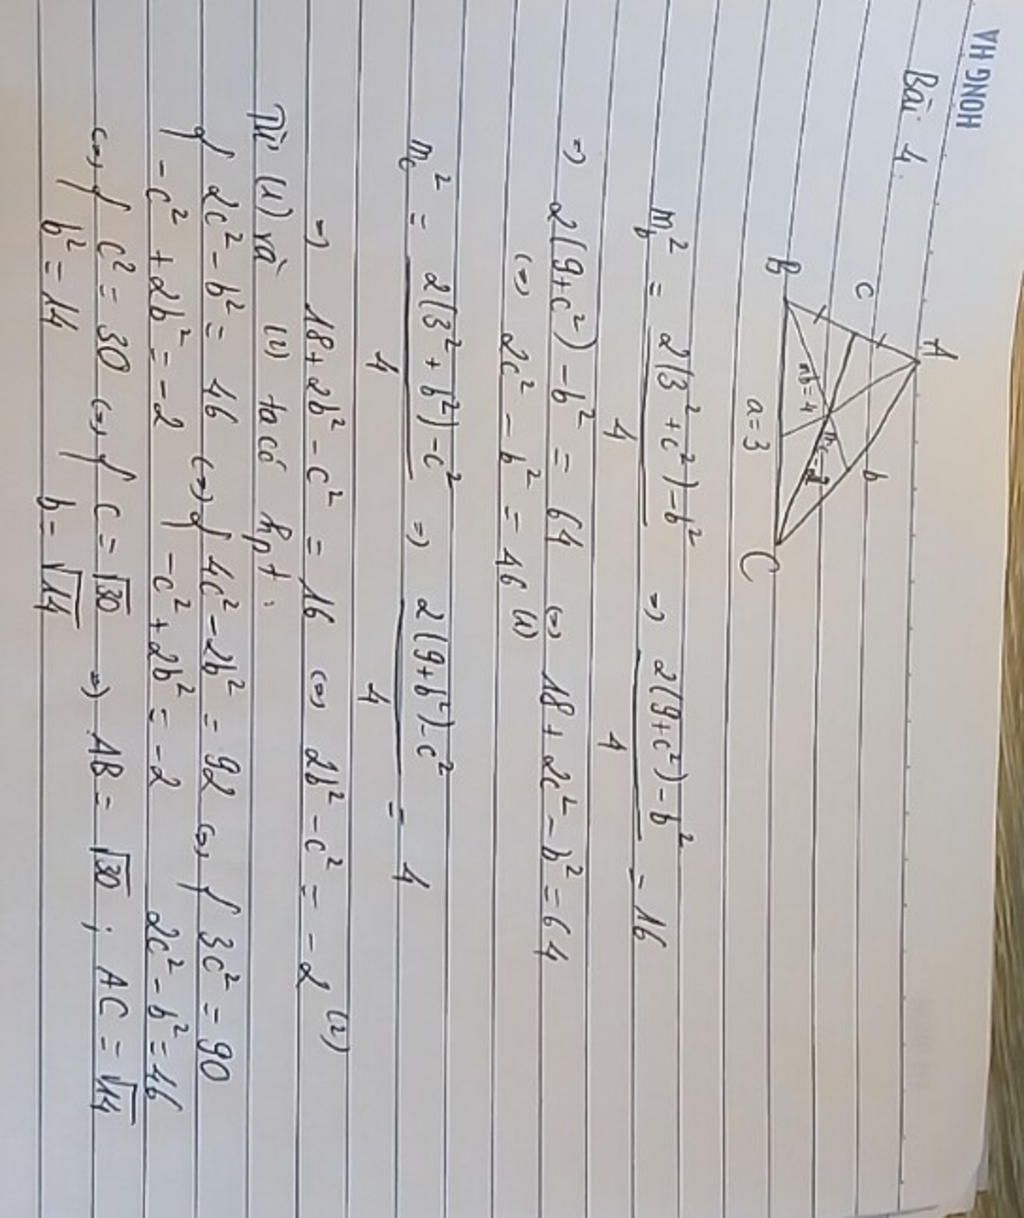 HONG HA
Bài 4.
A
c
b
mb = 4
mc = 2
B
a = 3
C
m_b² = 2(3² + c²) - b² / 4 => 2(9 + c²) - b² / 4 = 16
=> 2(9 + c²) - b² = 64 <=> 18 + 2c² - b² = 64
<=> 2c² - b² = 46 (1)
m_c² = 2(3² + b²) - c² / 4 => 2(9 + b²) - c² / 4 = 4
=> 18 + 2b² - c² = 16 <=> 2b² - c² = -2 (2)
Từ (1) và (2) ta có hpt:
{ 2c² - b² = 46 <=> { 4c² - 2b² = 92 <=> { 3c² = 90
{ -c² + 2b² = -2 { -c² + 2b² = -2 2c² - b² = 46
<=> { c² = 30 <=> { c = √30 => AB = √30 ; AC = √14
b² = 14 b = √14